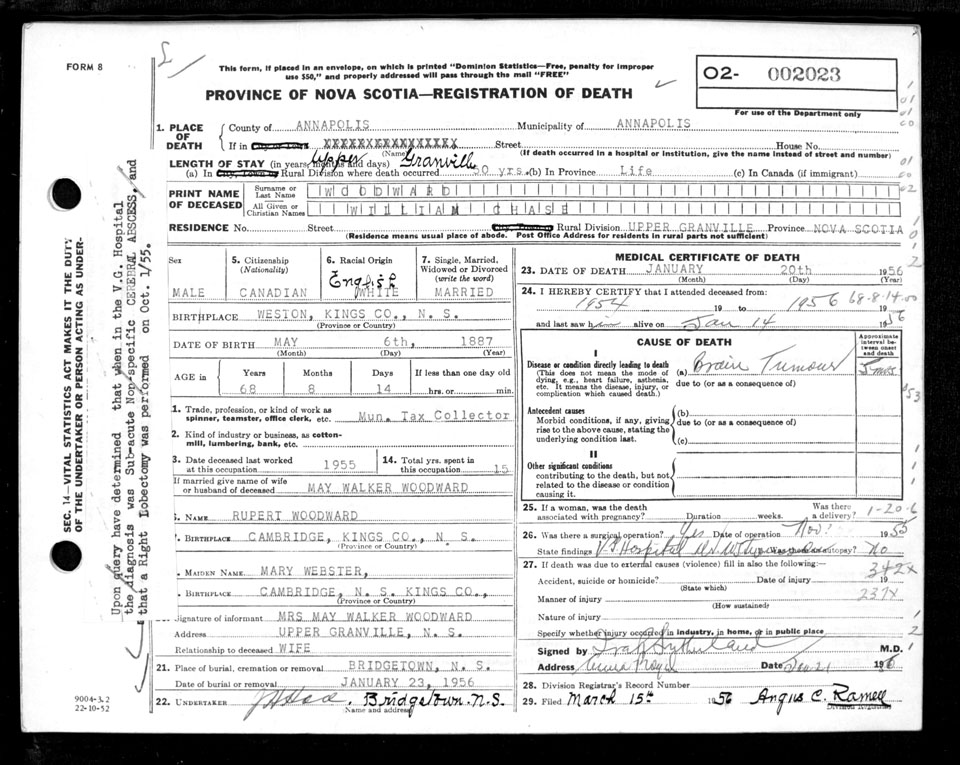 FORM 8
This form, if placed in an envelope, on which is printed "Dominion Statistics—Free, penalty for improper
use $50," and properly addressed will pass through the mail "FREE"
PROVINCE OF NOVA SCOTIA—REGISTRATION OF DEATH
02- 002023
For use of the Department only
1. PLACE OF DEATH
County of ANNAPOLIS Municipality of ANNAPOLIS
If in XXXXXXXXXXXXXXXX Street House No.
(Name) (If death occurred in a hospital or institution, give the name instead of street and number)
Upper Granville
LENGTH OF STAY (in years, months and days)
(a) In Rural Division where death occurred 50 yrs. (b) In Province Life (c) In Canada (if immigrant)
PRINT NAME OF DECEASED
Surname or Last Name WOODWARD
All Given or Christian Names WILLIAM CHASE
RESIDENCE No. Street Rural Division UPPER GRANVILLE Province NOVA SCOTIA
(Residence means usual place of abode. Post Office Address for residents in rural parts not sufficient)
Sex MALE
5. Citizenship (Nationality) CANADIAN
6. Racial Origin English WHITE
7. Single, Married, Widowed or Divorced (write the word) MARRIED
BIRTHPLACE WESTON, KINGS CO., N. S.
(Province or Country)
DATE OF BIRTH MAY 6th, 1887
(Month) (Day) (Year)
AGE in Years Months Days If less than one day old
68 8 14 hrs. or min.
1. Trade, profession, or kind of work as
spinner, teamster, office clerk, etc. Mun. Tax Collector
2. Kind of industry or business, as cotton-
mill, lumbering, bank, etc.
3. Date deceased last worked at this occupation 1955
14. Total yrs. spent in this occupation 15
If married give name of wife
or husband of deceased MAY WALKER WOODWARD
. NAME RUPERT WOODWARD
. BIRTHPLACE CAMBRIDGE, KINGS CO., N. S.
(Province or Country)
. MAIDEN NAME MARY WEBSTER,
. BIRTHPLACE CAMBRIDGE, N. S. KINGS CO.,
(Province or Country)
Signature of informant MRS MAY WALKER WOODWARD
Address UPPER GRANVILLE, N. S.
Relationship to deceased WIFE
21. Place of burial, cremation or removal BRIDGETOWN, N. S.
Date of burial or removal JANUARY 23, 1956
22. UNDERTAKER Bridgetown. N.S.
Name and address
MEDICAL CERTIFICATE OF DEATH
23. DATE OF DEATH JANUARY 20th 1956
(Month) (Day)
24. I HEREBY CERTIFY that I attended deceased from:
1954 19 to 1956 68-8-14-00
and last saw him alive on Jan 14 1956
CAUSE OF DEATH
Approximate interval between onset and death
I
Disease or condition directly leading to death
(This does not mean the mode of
dying, e.g., heart failure, asthenia,
etc. It means the disease, injury, or
complication which caused death.)
(a) Brain Tumour 5 mos
due to (or as a consequence of)
Antecedent causes
Morbid conditions, if any, giving
rise to the above cause, stating the
underlying condition last.
(b)
due to (or as a consequence of)
(c)
II
Other significant conditions
contributing to the death, but not
related to the disease or condition
causing it.
25. If a woman, was the death
associated with pregnancy? Duration weeks. Was there a delivery? 1-20-6
26. Was there a surgical operation? Yes Date of operation Nov. 1955
State findings Hospital Was there an autopsy? No
27. If death was due to external causes (violence) fill in also the following:—
342x
Accident, suicide or homicide? Date of injury 19
(State which)
237x
Manner of injury
(How sustained)
Nature of injury
Specify whether injury occurred in industry, in home, or in public place
Signed by Sutherland M.D.
Address Annapolis Date Jan 21 1956
28. Division Registrar's Record Number
29. Filed March 15th 1956 Angus C. Ramell
Division Registrar
9004-3.2
22-10-52
SEC. 14—VITAL STATISTICS ACT MAKES IT THE DUTY
OF THE UNDERTAKER OR PERSON ACTING AS UNDER-
Upon query have determined that when in the V.G. Hospital
the diagnosis was Sub-acute Non-specific CEREBRAL ABSCESS, and
that a Right Lobectomy was performed on Oct. 1/55.